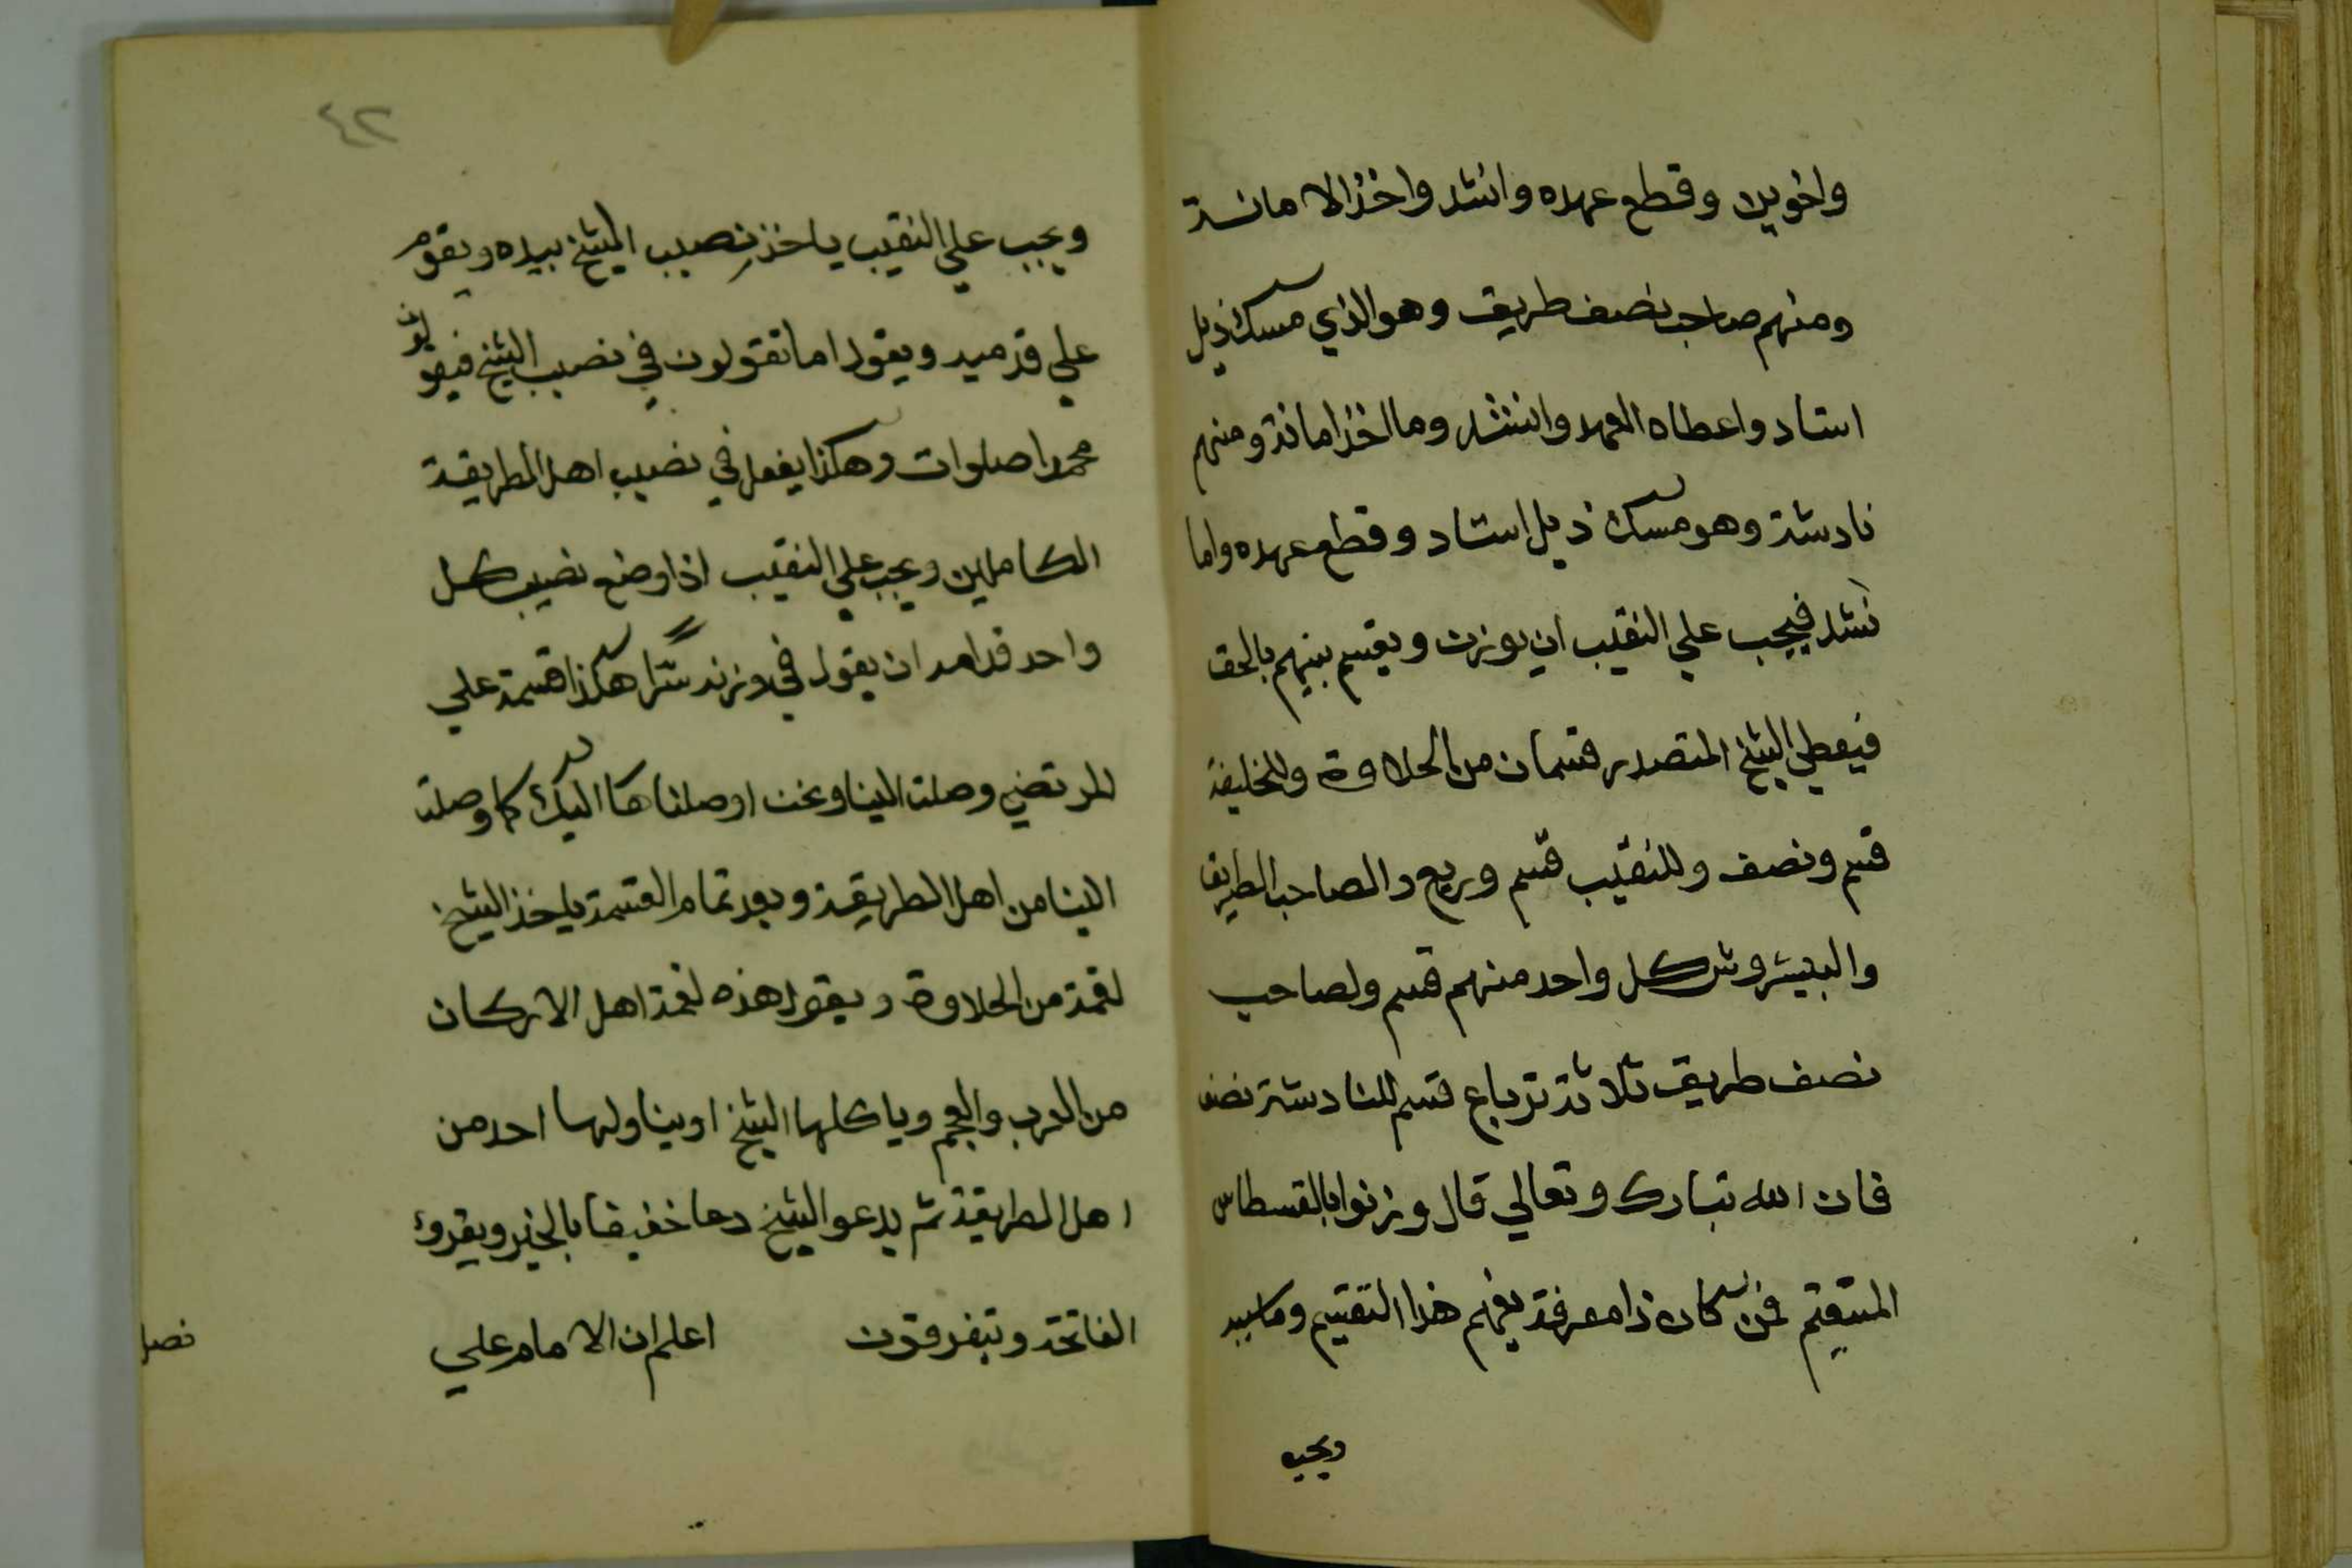 واخوين وقطع عهده وانشد واخذ الامانة
ومنهم صاحب نصف طريق وهو الذي مسك ذيل
استاد واعطاه العهد وانشد وما اخذ امانة ومنهم
نادشة وهو مسك ذيل استاد وقطع عهده واما
نشد فيجب علي النقيب ان يوزن ويقسم بينهم بالحق
فيعطي الشيخ المتصدر قسمان من الحلاوة وللخليفة
قسم ونصف وللنقيب قسم وربع والصاحب الطريق
والبيشروش كل واحد منهم قسم ولصاحب
نصف طريق ثلاثة ترباع قسم للنادشة نصف
فان الله تبارك وتعالي قال وزنوا بالقسطاس
المستقيم فمن كان ذا معرفة يفهم هذا التقسيم
ويجب
٤٢
ويجب علي النقيب ياخذ نصيب الشيخ بيده ويقوم
علي قدميه ويقول ما تقولون في نصيب الشيخ فيقولون
محمدا صلوات وهكذا يفعل في نصيب اهل الطريقة
الكاملين ويجب علي النقيب اذا وضع نصيب كل
واحد قدامه ان يقول في وزنه سرا هكذا قسمة علي
المرتضي وصلت الينا ونحن اوصلناها اليك كما وصلت
الينا من اهل الطريقة وبعد تمام القسمة ياخذ الشيخ
لقمة من الحلاوة ويقول هذه لقمة اهل الاركان
من العرب والعجم وياكلها الشيخ او يناولها احد من
اهل الطريقة ثم يدعو الشيخ دعا خفيفا بالخير ويقروُ
الفاتحة ويتفرقون اعلم ان الامام علي
فصل